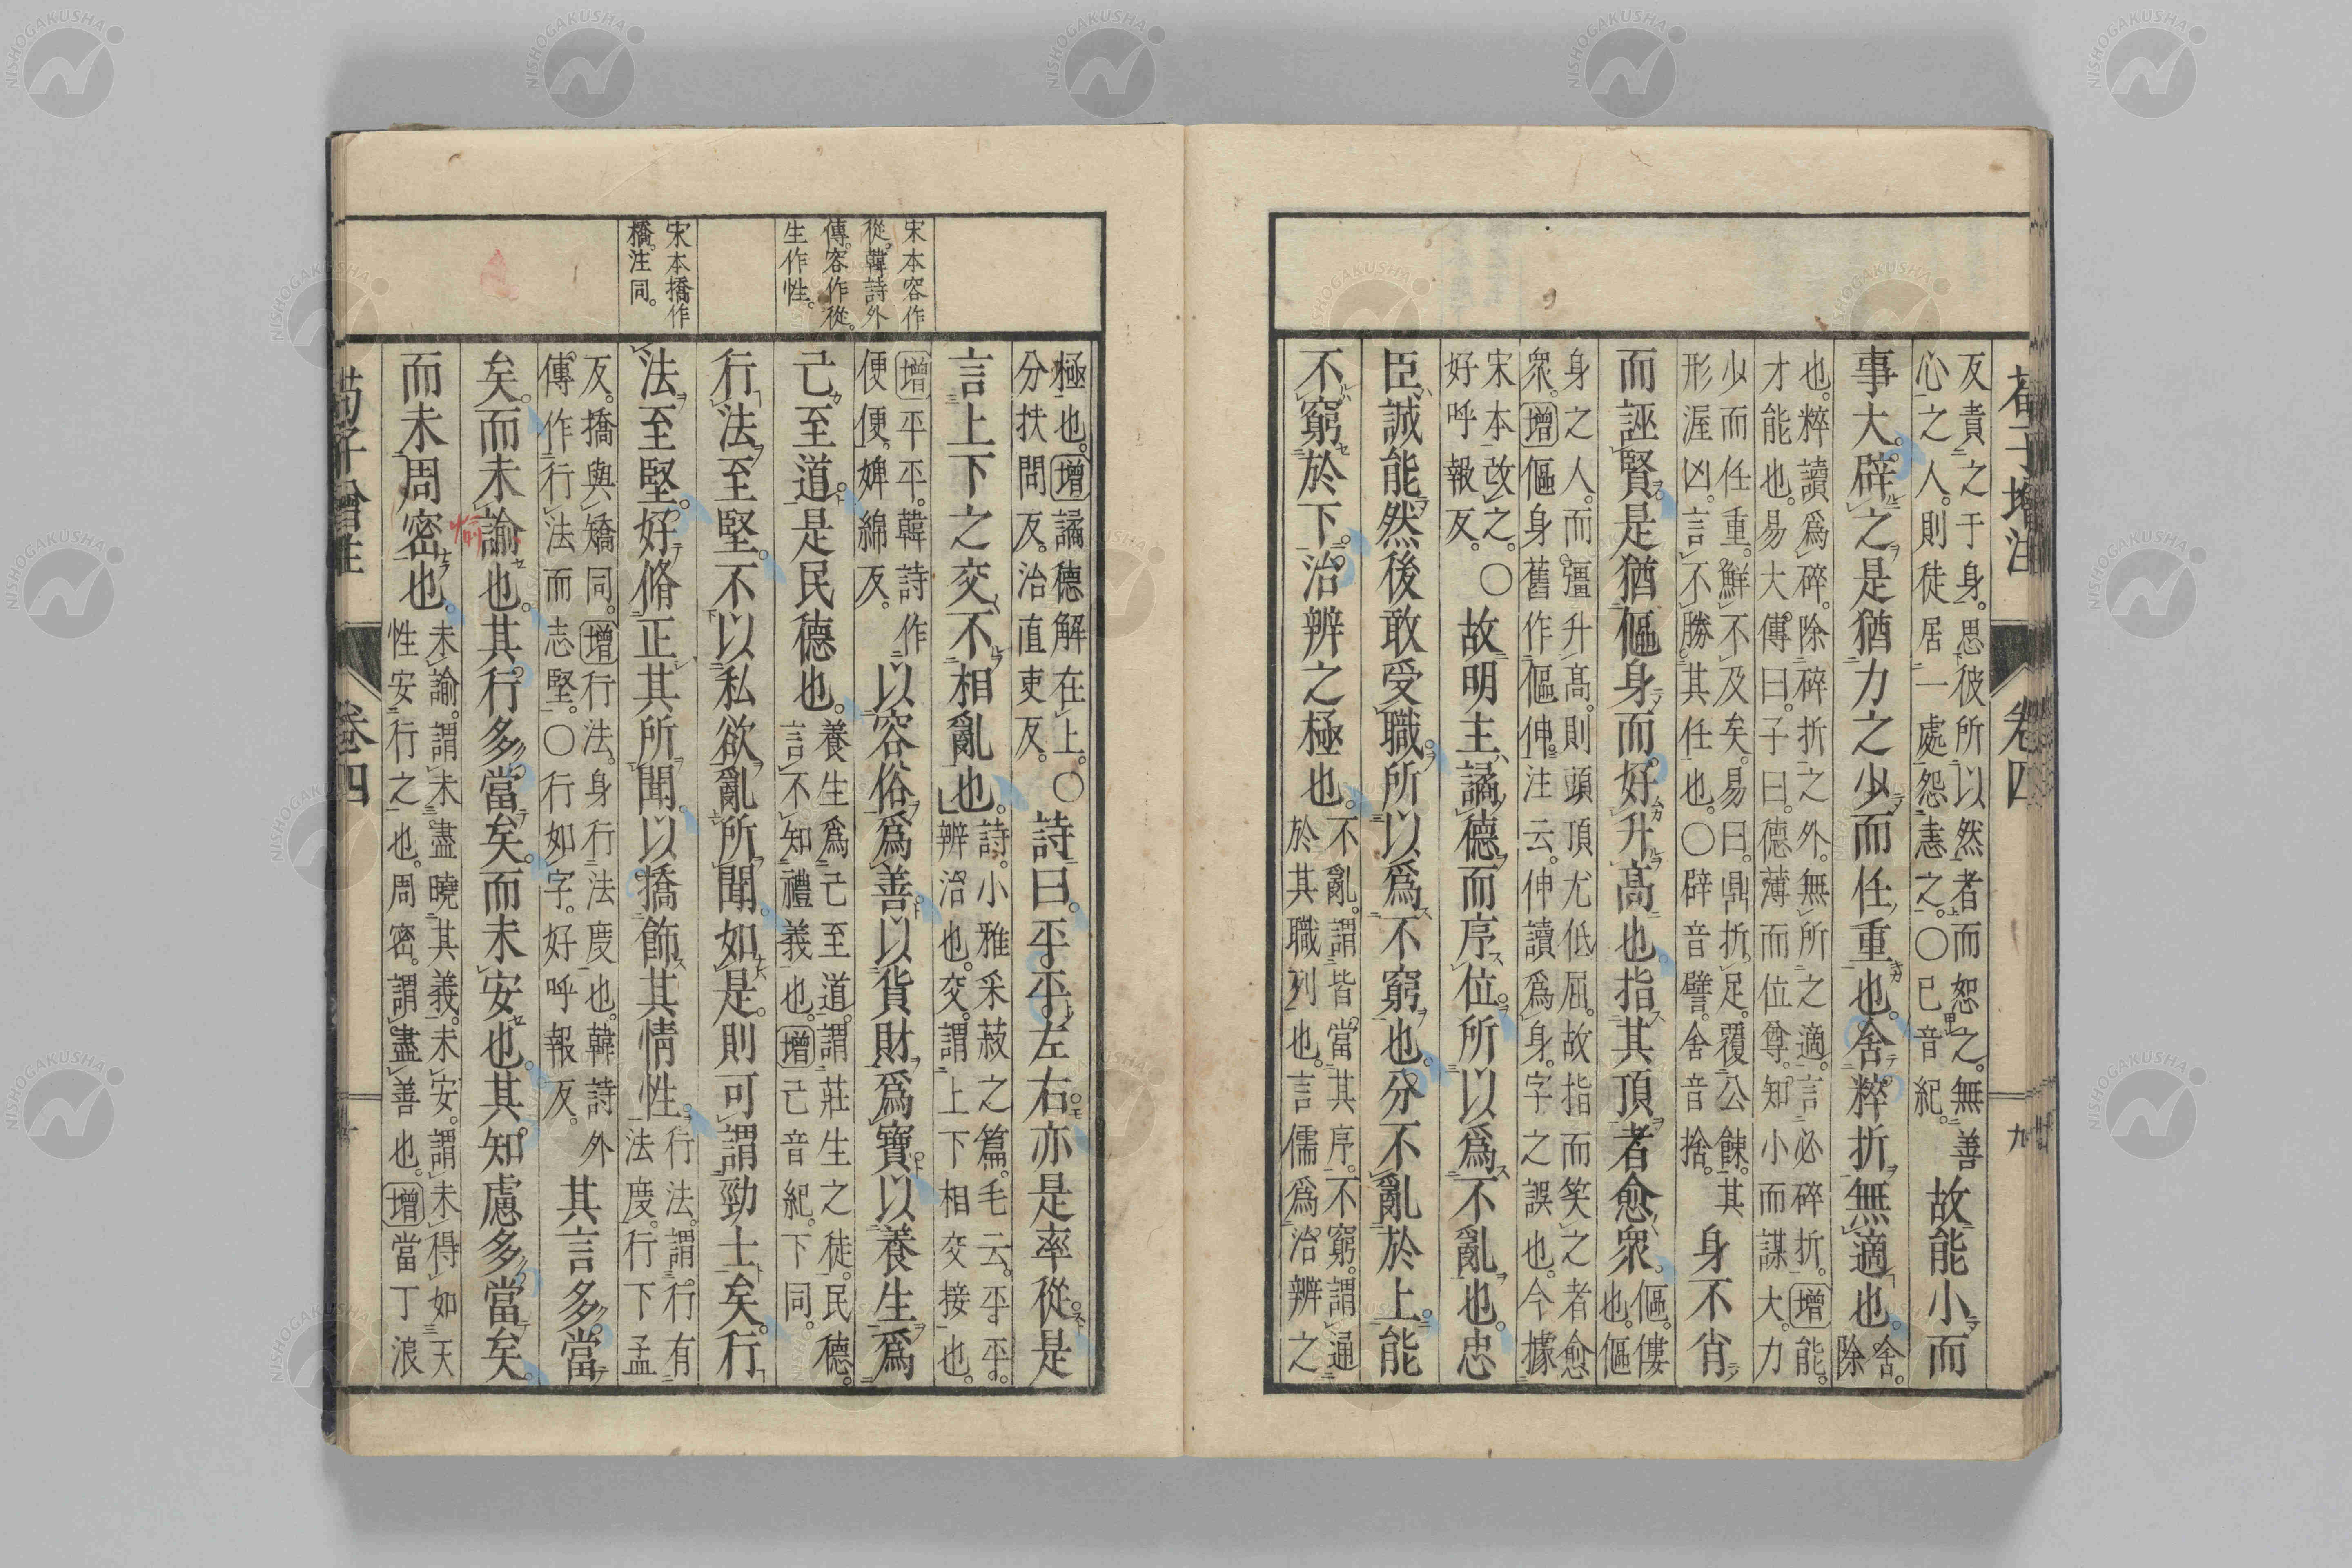 荀子增注 卷四 十九
反責之于身。思彼所以然者而恕之。無善
心之人。則徒居一處怨恚之。〇已音紀。
故能小而
事大。辟之是猶力之少而任重也。舍粹折無適也。
舍。
除
也。粹讀爲碎。除碎折之外。無所之適。言必碎折。增能。
才能也。易大傳曰。子曰。德薄而位尊。知小而謀大。力
少而任重。鮮不及矣。易曰。鼎折足。覆公餗。其
形渥凶。言不勝其任也。〇辟音譬。舍音捨。
身不肖
而誣賢是猶傴身而。好升高也。指其頂者愈衆。
傴僂
也。傴
身之人。而彊升高。則頭頂尤低屈。故指而笑之者愈
衆。增傴身舊作傴伸。注云。伸讀爲身。字之誤也。今據
宋本改之。〇
好呼報反。
故明主譎德而序位。所以爲不亂也。忠
臣誠能然後敢受職。所以爲不窮也。分不亂於上。能
不窮於下。治辨之極也。
不亂。謂皆當其序。不窮。謂通
於其職列也。言儒爲治辨之
極也。增譎德解在上。〇
分扶問反。治直吏反。
詩曰。平平左右亦是率從是
言上下之交不相亂也。
詩。小雅采菽之篇。毛云。平平。
辨治也。交。謂上下相交接也。
宋本容作
從。韓詩外
傳。容作從。
生作性。
增平平。韓詩作
便便。婢綿反。
以容俗爲善。以貨財爲寶。以養生爲
己至道。是民德也。
養生爲己至道。謂莊生之徒。民德。
言不知禮義也。增己音紀。下同。
行法至堅。不以私欲亂所聞。如是。則可謂勁士矣。行
宋本撟作
橋。注同。
法至堅。好脩正其所聞。以撟飾其情性。
行法。謂行有
法度。行下孟
反。撟與矯同。增行法。身行法度也。韓詩外
傳。作行法而志堅。〇行如字。好呼報反。
其言多當
矣。而未諭也。其行多當矣。而未安也。其知慮多當矣。
愉
而未周密也。
未諭。謂未盡曉其義。未安。謂未得如天
性安行之也。周密。謂盡善也。增當丁浪
荀子增注 卷四
NISHOGAKUSHA